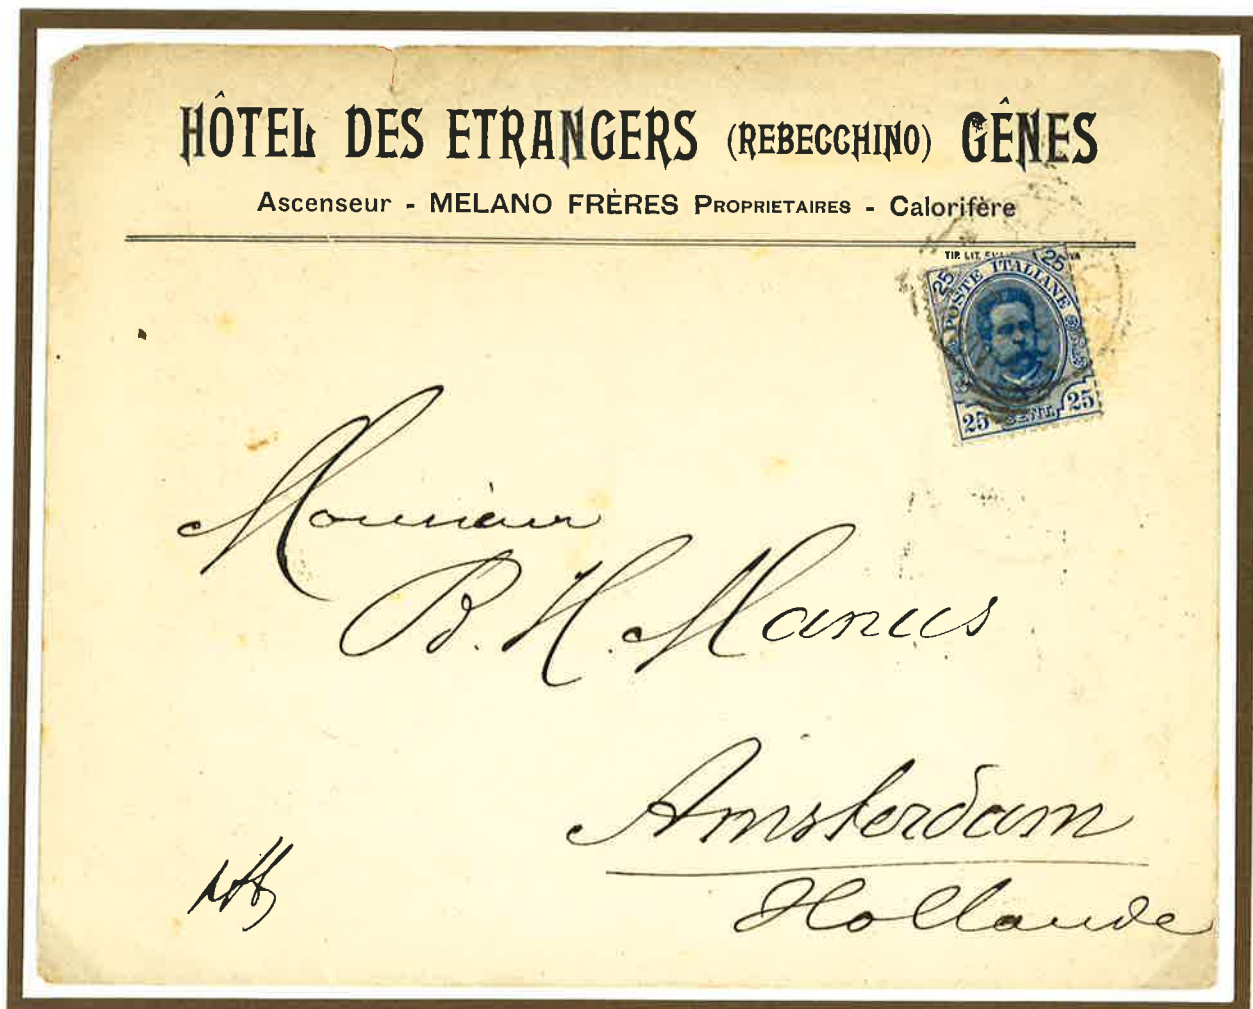 HÔTEL DES ETRANGERS (REBECCHINO) GÊNES
Ascenseur - MELANO FRÈRES PROPRIETAIRES - Calorifère
TIP. LIT.
25 25
POSTE ITALIANE
25 CENT. 25
Monsieur
B. H. Manus
Amsterdam
Hollande